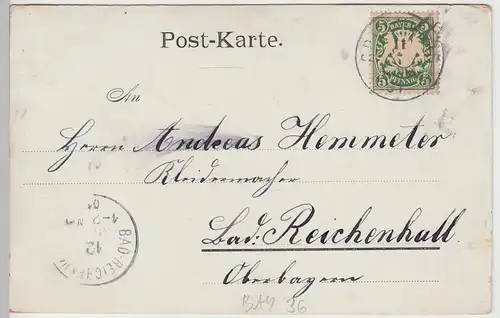 Post-Karte.
5 BAYERN 5
5 PFENNIG 5
An
Herrn Andreas Hemmeter
Kleidermacher
Bad: Reichenhall
Oberbayern
BAD-REICHENHALL
12
1-2
BAY 36